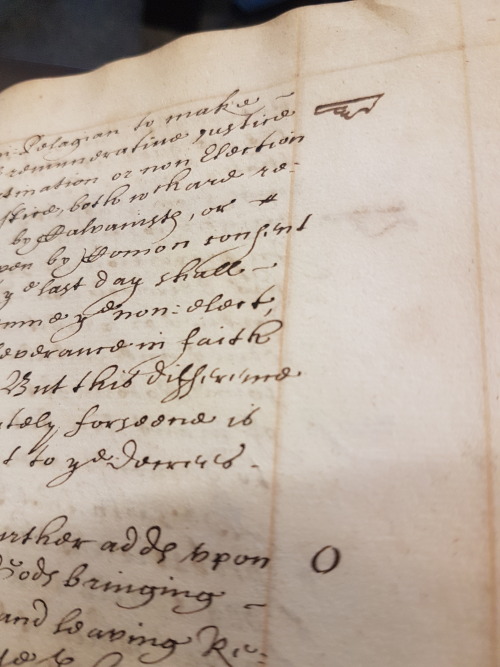 Pelagian to make
remunerative Justice
tination or non Election
stice, both wch are re:
by Calvanists, or
pen by Common consent
ye last day shall
mne ye non: elect,
severance in faith
But this difference
ately forseene is
t to ye Decrees.
urther adds upon O
Gods bringing
and leaving Re: